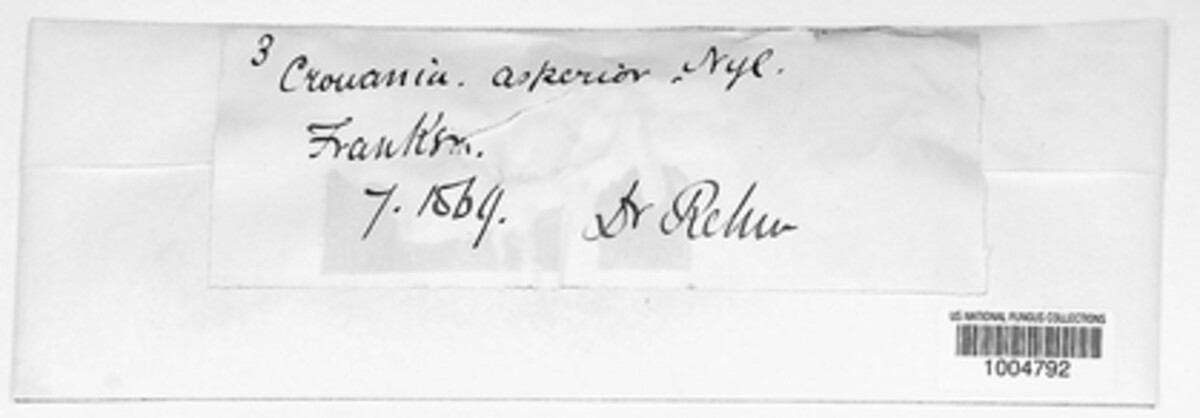 3 Crouania. asperior Nyl.
Frankon.
7. 1869. Dr Rehm
US NATIONAL FUNGUS COLLECTIONS
1004792